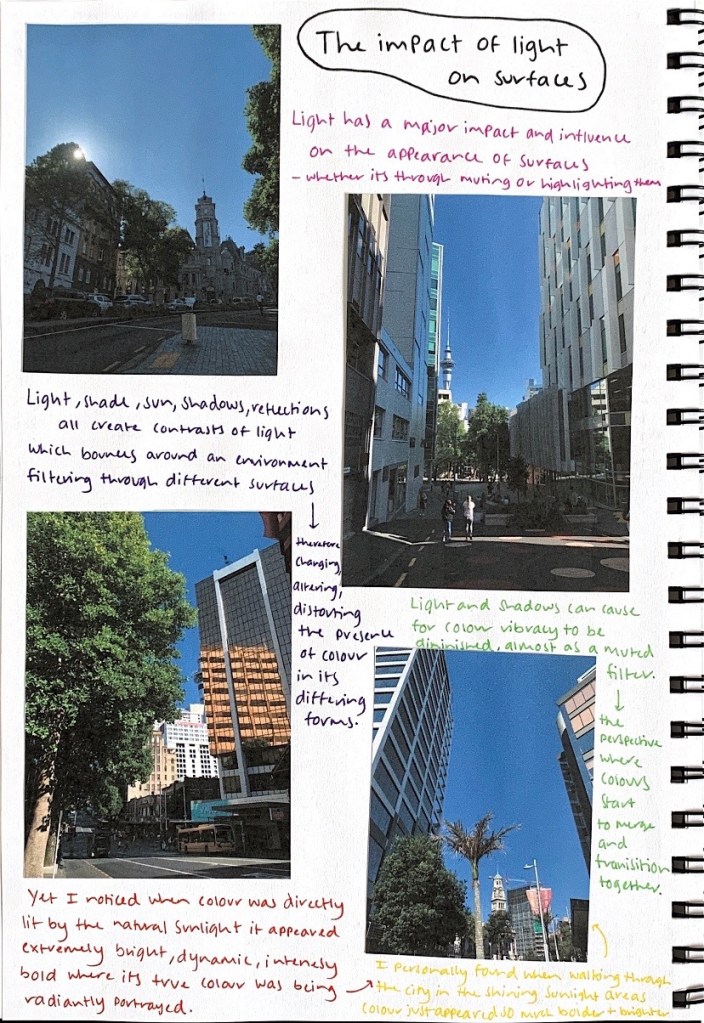 The impact of light
on surfaces
Light has a major impact and influence
on the appearance of surfaces
- whether its through muting or highlighting them
Light, shade, sun, shadows, reflections
all create contrasts of light
which bounces around an environment
filtering through different surfaces
therefore
changing,
altering,
distorting
the presence
of colour
in its
differing
forms.
Light and shadows can cause
for colour vibracy to be
diminished, almost as a muted
filter.
the
perspective
where
colours
start
to merge
and
transition
together.
Yet I noticed when colour was directly
lit by the natural sunlight it appeared
extremely bright, dynamic, intensely
bold where its true colour was being
radiantly portrayed.
I personally found when walking through
the city in the shining sunlight areas
colour just appeared so much bolder + brighter